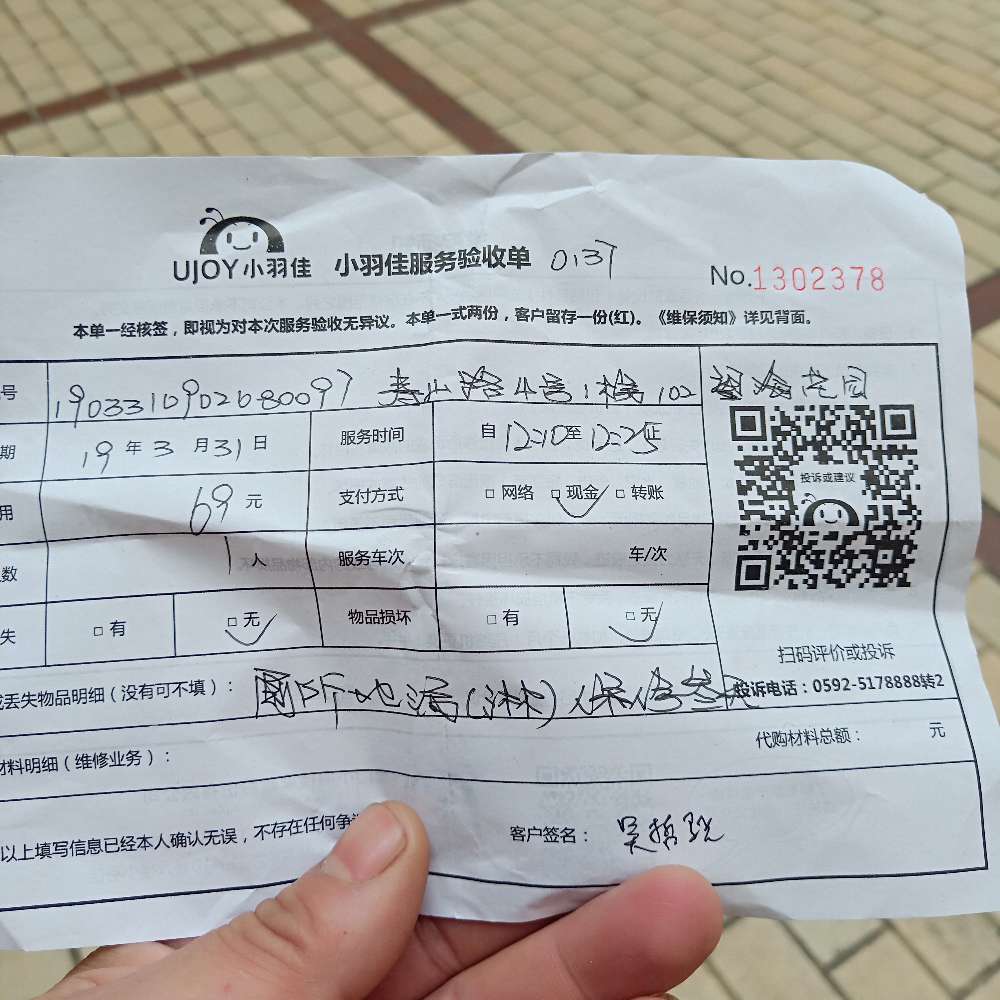 UJOY小羽佳 小羽佳服务验收单 0137
No.1302378
本单一经核签，即视为对本次服务验收无异议。本单一式两份，客户留存一份(红)。《维保须知》详见背面。
号 1903310902080097 寿山路4号1梯102 花园
期 19年3月31日 服务时间 自12:10至12:25止
用 69元 支付方式 □网络 □现金✓ □转账
投诉或建议
数 1人 服务车次 车/次
失 □有 □无✓ 物品损坏 □有 □无✓
扫码评价或投诉
或丢失物品明细（没有可不填）： 厕所地漏(淋)保修叁天
投诉电话：0592-5178888转2
代购材料总额： 元
材料明细（维修业务）：
以上填写信息已经本人确认无误，不存在任何争 客户签名： 吴